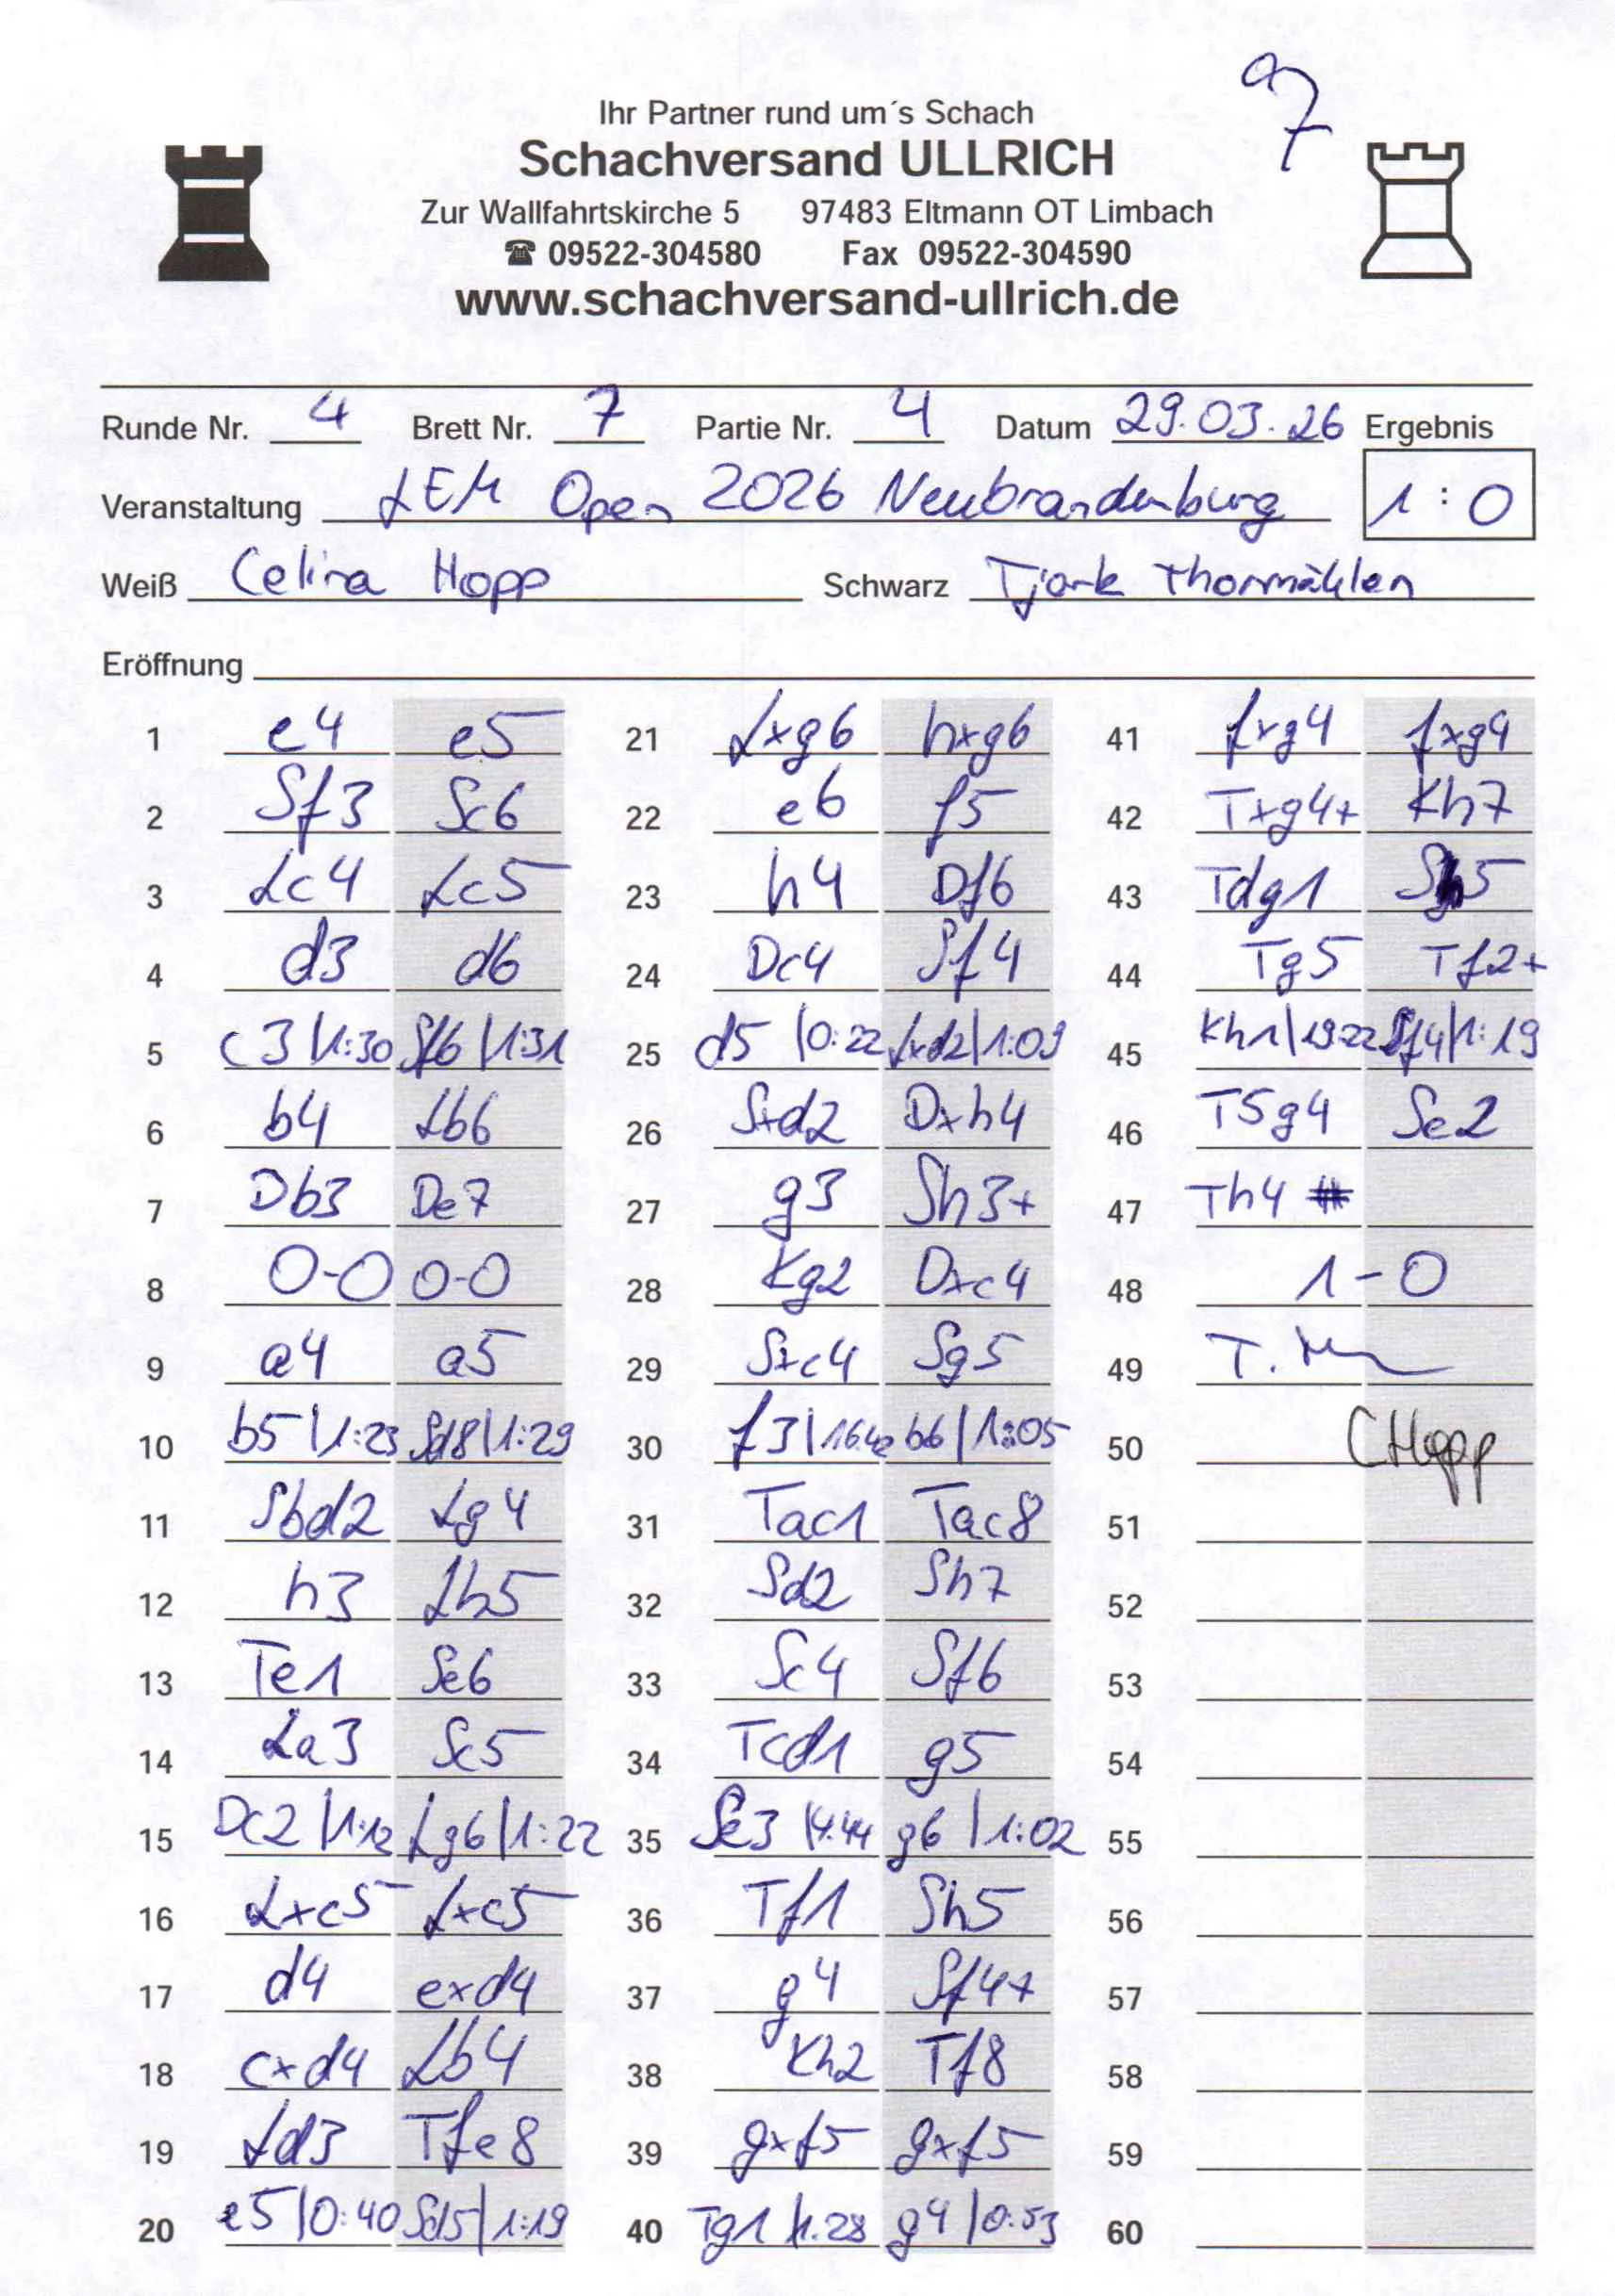 97
Ihr Partner rund um´s Schach
Schachversand ULLRICH
Zur Wallfahrtskirche 5 97483 Eltmann OT Limbach
☎ 09522-304580 Fax 09522-304590
www.schachversand-ullrich.de
Runde Nr. 4 Brett Nr. 7 Partie Nr. 4 Datum 29.03.26 Ergebnis
Veranstaltung LEM Open 2026 Neubrandenburg 1:0
Weiß Celina Hopp Schwarz Tjark Thormählen
Eröffnung
1 e4 e5 21 Lxg6 hxg6 41 fxg4 fxg4
2 Sf3 Sc6 22 e6 f5 42 Txg4+ Kh7
3 Lc4 Lc5 23 h4 Df6 43 Tdg1 Sh5
4 d3 d6 24 Dc4 Sf4 44 Tg5 Tf2+
5 c3 |1:30 Sf6 |1:31 25 d5 |0:22 Lxd2|1:09 45 Kh1|19:22 Sf4|1:19
6 b4 Lb6 26 Sxd2 Dxh4 46 T5g4 Se2
7 Db3 De7 27 g3 Sh3+ 47 Th4 #
8 O-O O-O 28 Kg2 Dxc4 48 1-0
9 a4 a5 29 Sxc4 Sg5 49 T.
10 b5 |1:23 Sd8|1:29 30 f3|16:42 b6|1:05 50 CHopp
11 Sbd2 Lg4 31 Tac1 Tac8 51
12 h3 Lh5 32 Sd2 Sh7 52
13 Te1 Se6 33 Sc4 Sf6 53
14 La3 Sc5 34 Tcd1 g5 54
15 Dc2 |1:12 Lg6|1:22 35 Se3 |4:44 g6 |1:02 55
16 Lxc5 Lxc5 36 Tf1 Sh5 56
17 d4 exd4 37 g4 Sf4+ 57
18 cxd4 Lb4 38 Kh2 Tf8 58
19 Ld3 Tfe8 39 gxf5 gxf5 59
20 e5 |0:40 Sd5|1:19 40 Tg1 |1:28 g4 |0:53 60